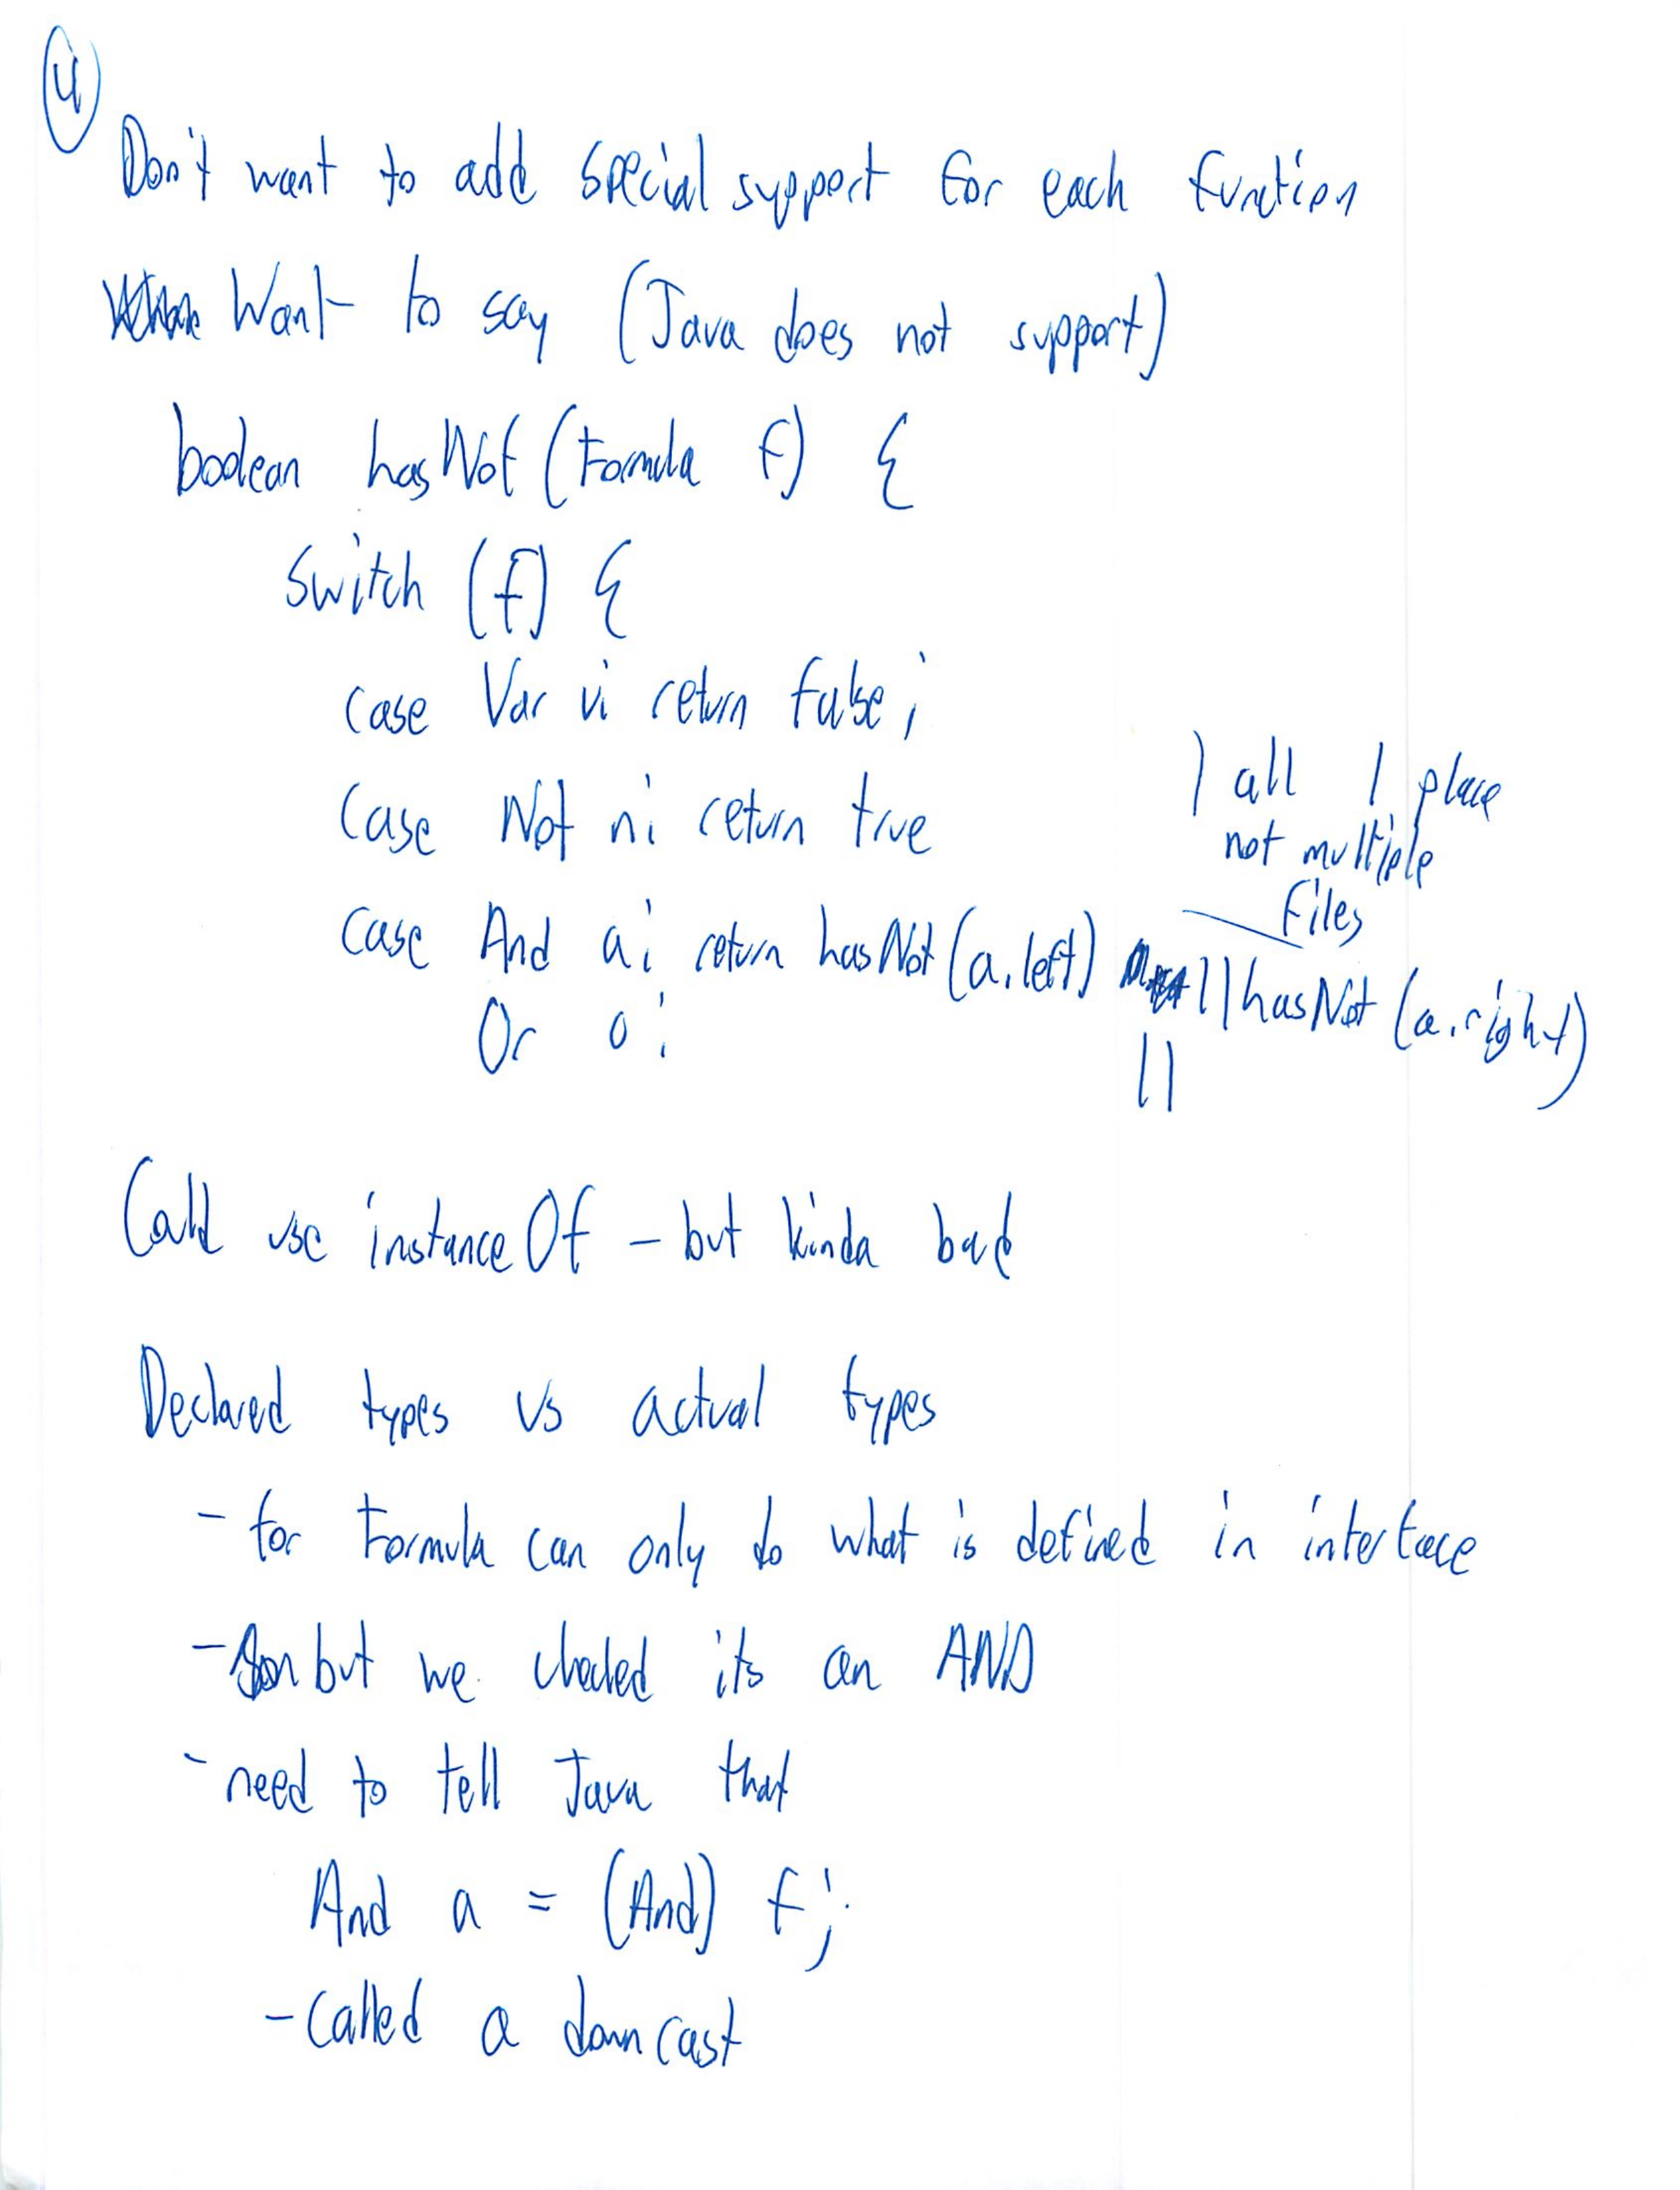 4
Don't want to add special support for each function
Want to say (Java does not support)
boolean hasNot (Formula f) {
switch (f) {
case Var v: return false;
case Not n: return true
case And a: return hasNot (a.left) || hasNot (a.right)
Or o: ||
) all 1 place
not multiple
files
Could use instanceOf - but kinda bad
Declared types vs actual types
- for Formula can only do what is defined in interface
- but we checked its an AND
- need to tell Java that
And a = (And) f;
- called a downcast